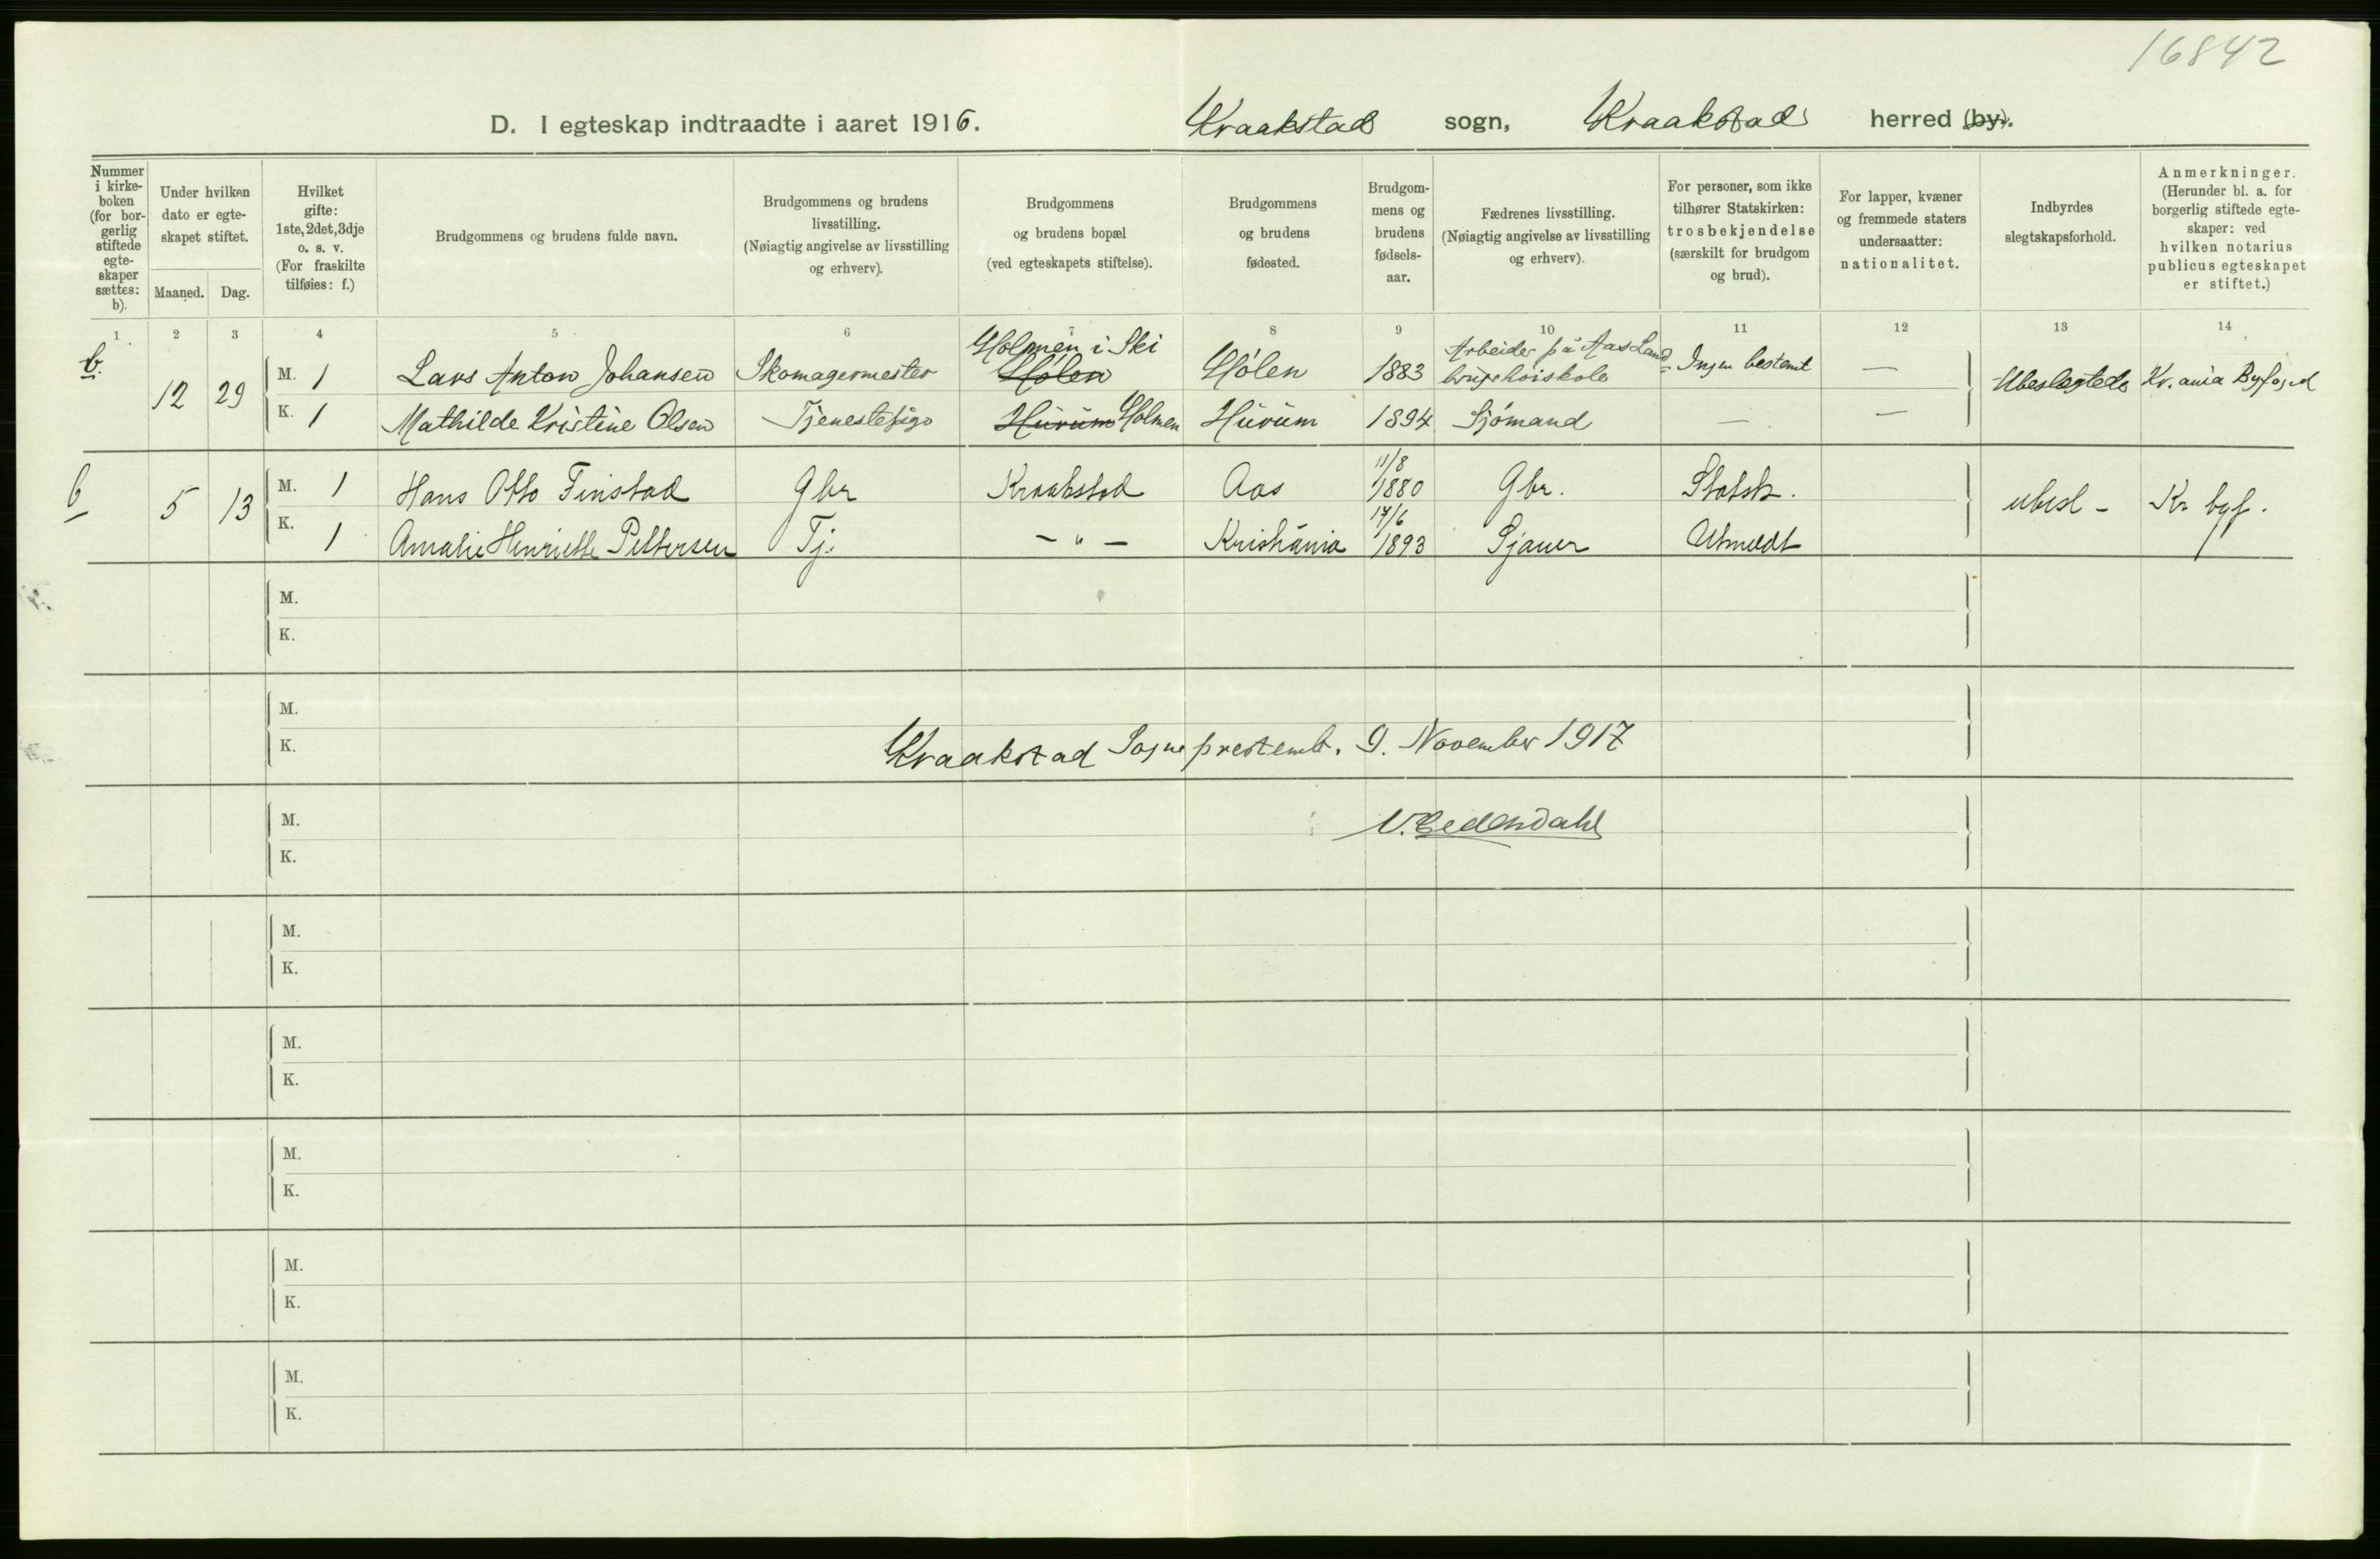 16842
D. I egteskap indtraadte i aaret 1916. Kraakstad sogn, Kraakstad herred (by).
Nummer i kirkeboken (for borgerlig stiftede egteskaper sættes: b).
Under hvilken dato er egteskapet stiftet.
Maaned. Dag.
Hvilket gifte: 1ste, 2det, 3dje o. s. v. (For fraskilte tilføies: f.)
Brudgommens og brudens fulde navn.
Brudgommens og brudens livsstilling. (Nøiagtig angivelse av livsstilling og erhverv).
Brudgommens og brudens bopæl (ved egteskapets stiftelse).
Brudgommens og brudens fødested.
Brudgommens og brudens fødselsaar.
Fædrenes livsstilling. (Nøiagtig angivelse av livsstilling og erhverv).
For personer, som ikke tilhører Statskirken: trosbekjendelse (særskilt for brudgom og brud).
For lapper, kvæner og fremmede staters undersaatter: nationalitet.
Indbyrdes slegtskapsforhold.
Anmerkninger. (Herunder bl. a. for borgerlig stiftede egteskaper: ved hvilken notarius publicus egteskapet er stiftet.)
1 2 3 4 5 6 7 8 9 10 11 12 13 14
b. 12 29
M. 1 Lars Anton Johansen Skomagermester Holmen i Ski Hölen Hölen 1883 Arbeider på Aas Landbrugshöiskole Ingen bestemt — Ubeslegtede Kr.ania Byfogd
K. 1 Mathilde Kristine Olsen Tjenestepige Hurum Holmen Hurum 1894 Sjömand — —
b 5 13
M. 1 Hans Otto Finstad Gbr Kraakstad Aas 11/8 1880 Gbr. Statsk. ubesl - Kr byf.
K. 1 Amalie Henriette Pettersen Tj. - " - Kristiania 17/6 1893 Sjauer Utmeldt
M.
K.
M.
K.
Kraakstad Sogneprestemb. 9. November 1917
M.
K.
M.
K.
M.
K.
M.
K.
M.
K.
M.
K.